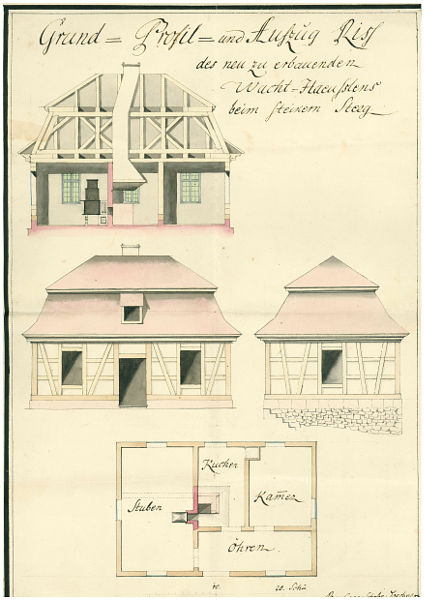 Grund = Profil = und Aufzug Riss
des neu zu erbauenden
Wacht = Haeusslens
beim steinern Steeg.
Kuchen
Stuben
Kam̄er
Öhren
10.
20. Schu